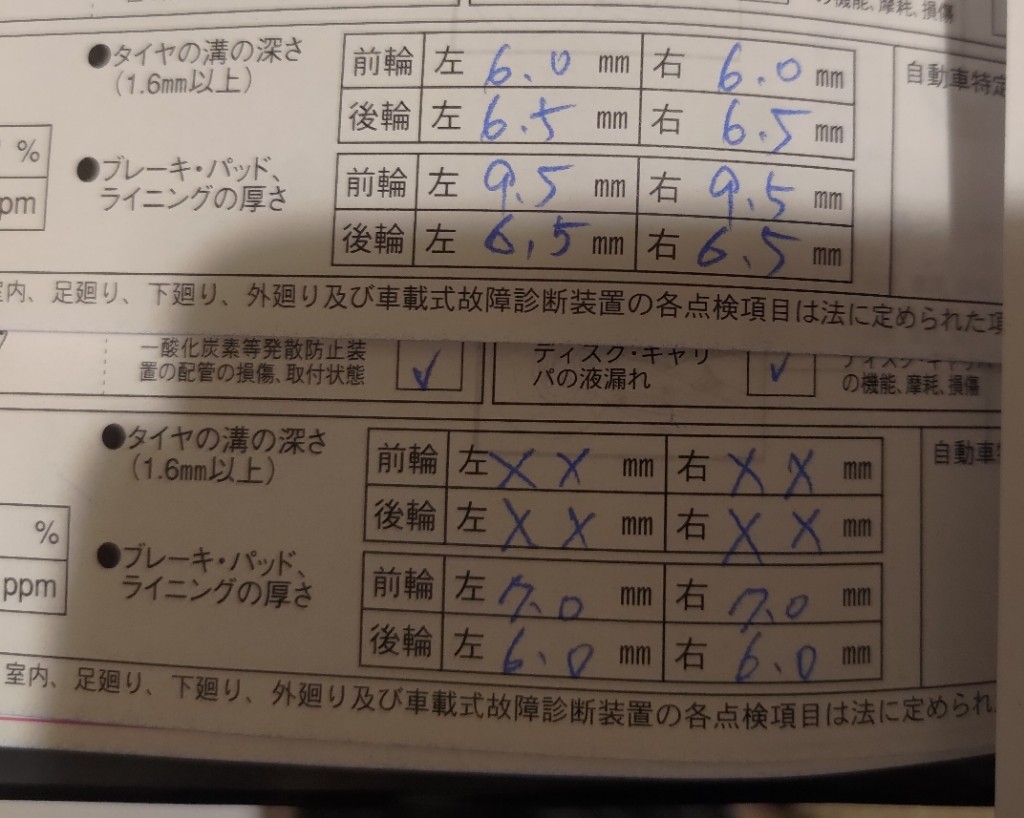 の機能、摩耗、損傷
●タイヤの溝の深さ
(1.6mm以上)
前輪 左 6.0 mm 右 6.0 mm
後輪 左 6.5 mm 右 6.5 mm
自動車特定
%
ppm
●ブレーキ・パッド、
ライニングの厚さ
前輪 左 9.5 mm 右 9.5 mm
後輪 左 6.5 mm 右 6.5 mm
室内、足廻り、下廻り、外廻り及び車載式故障診断装置の各点検項目は法に定められた項
一酸化炭素等発散防止装
置の配管の損傷、取付状態
✓
ディスク・キャリ
パの液漏れ
✓
の機能、摩耗、損傷
●タイヤの溝の深さ
(1.6mm以上)
前輪 左 X X mm 右 X X mm
後輪 左 X X mm 右 X X mm
自動車
%
ppm
●ブレーキ・パッド、
ライニングの厚さ
前輪 左 7.0 mm 右 7.0 mm
後輪 左 6.0 mm 右 6.0 mm
室内、足廻り、下廻り、外廻り及び車載式故障診断装置の各点検項目は法に定められ